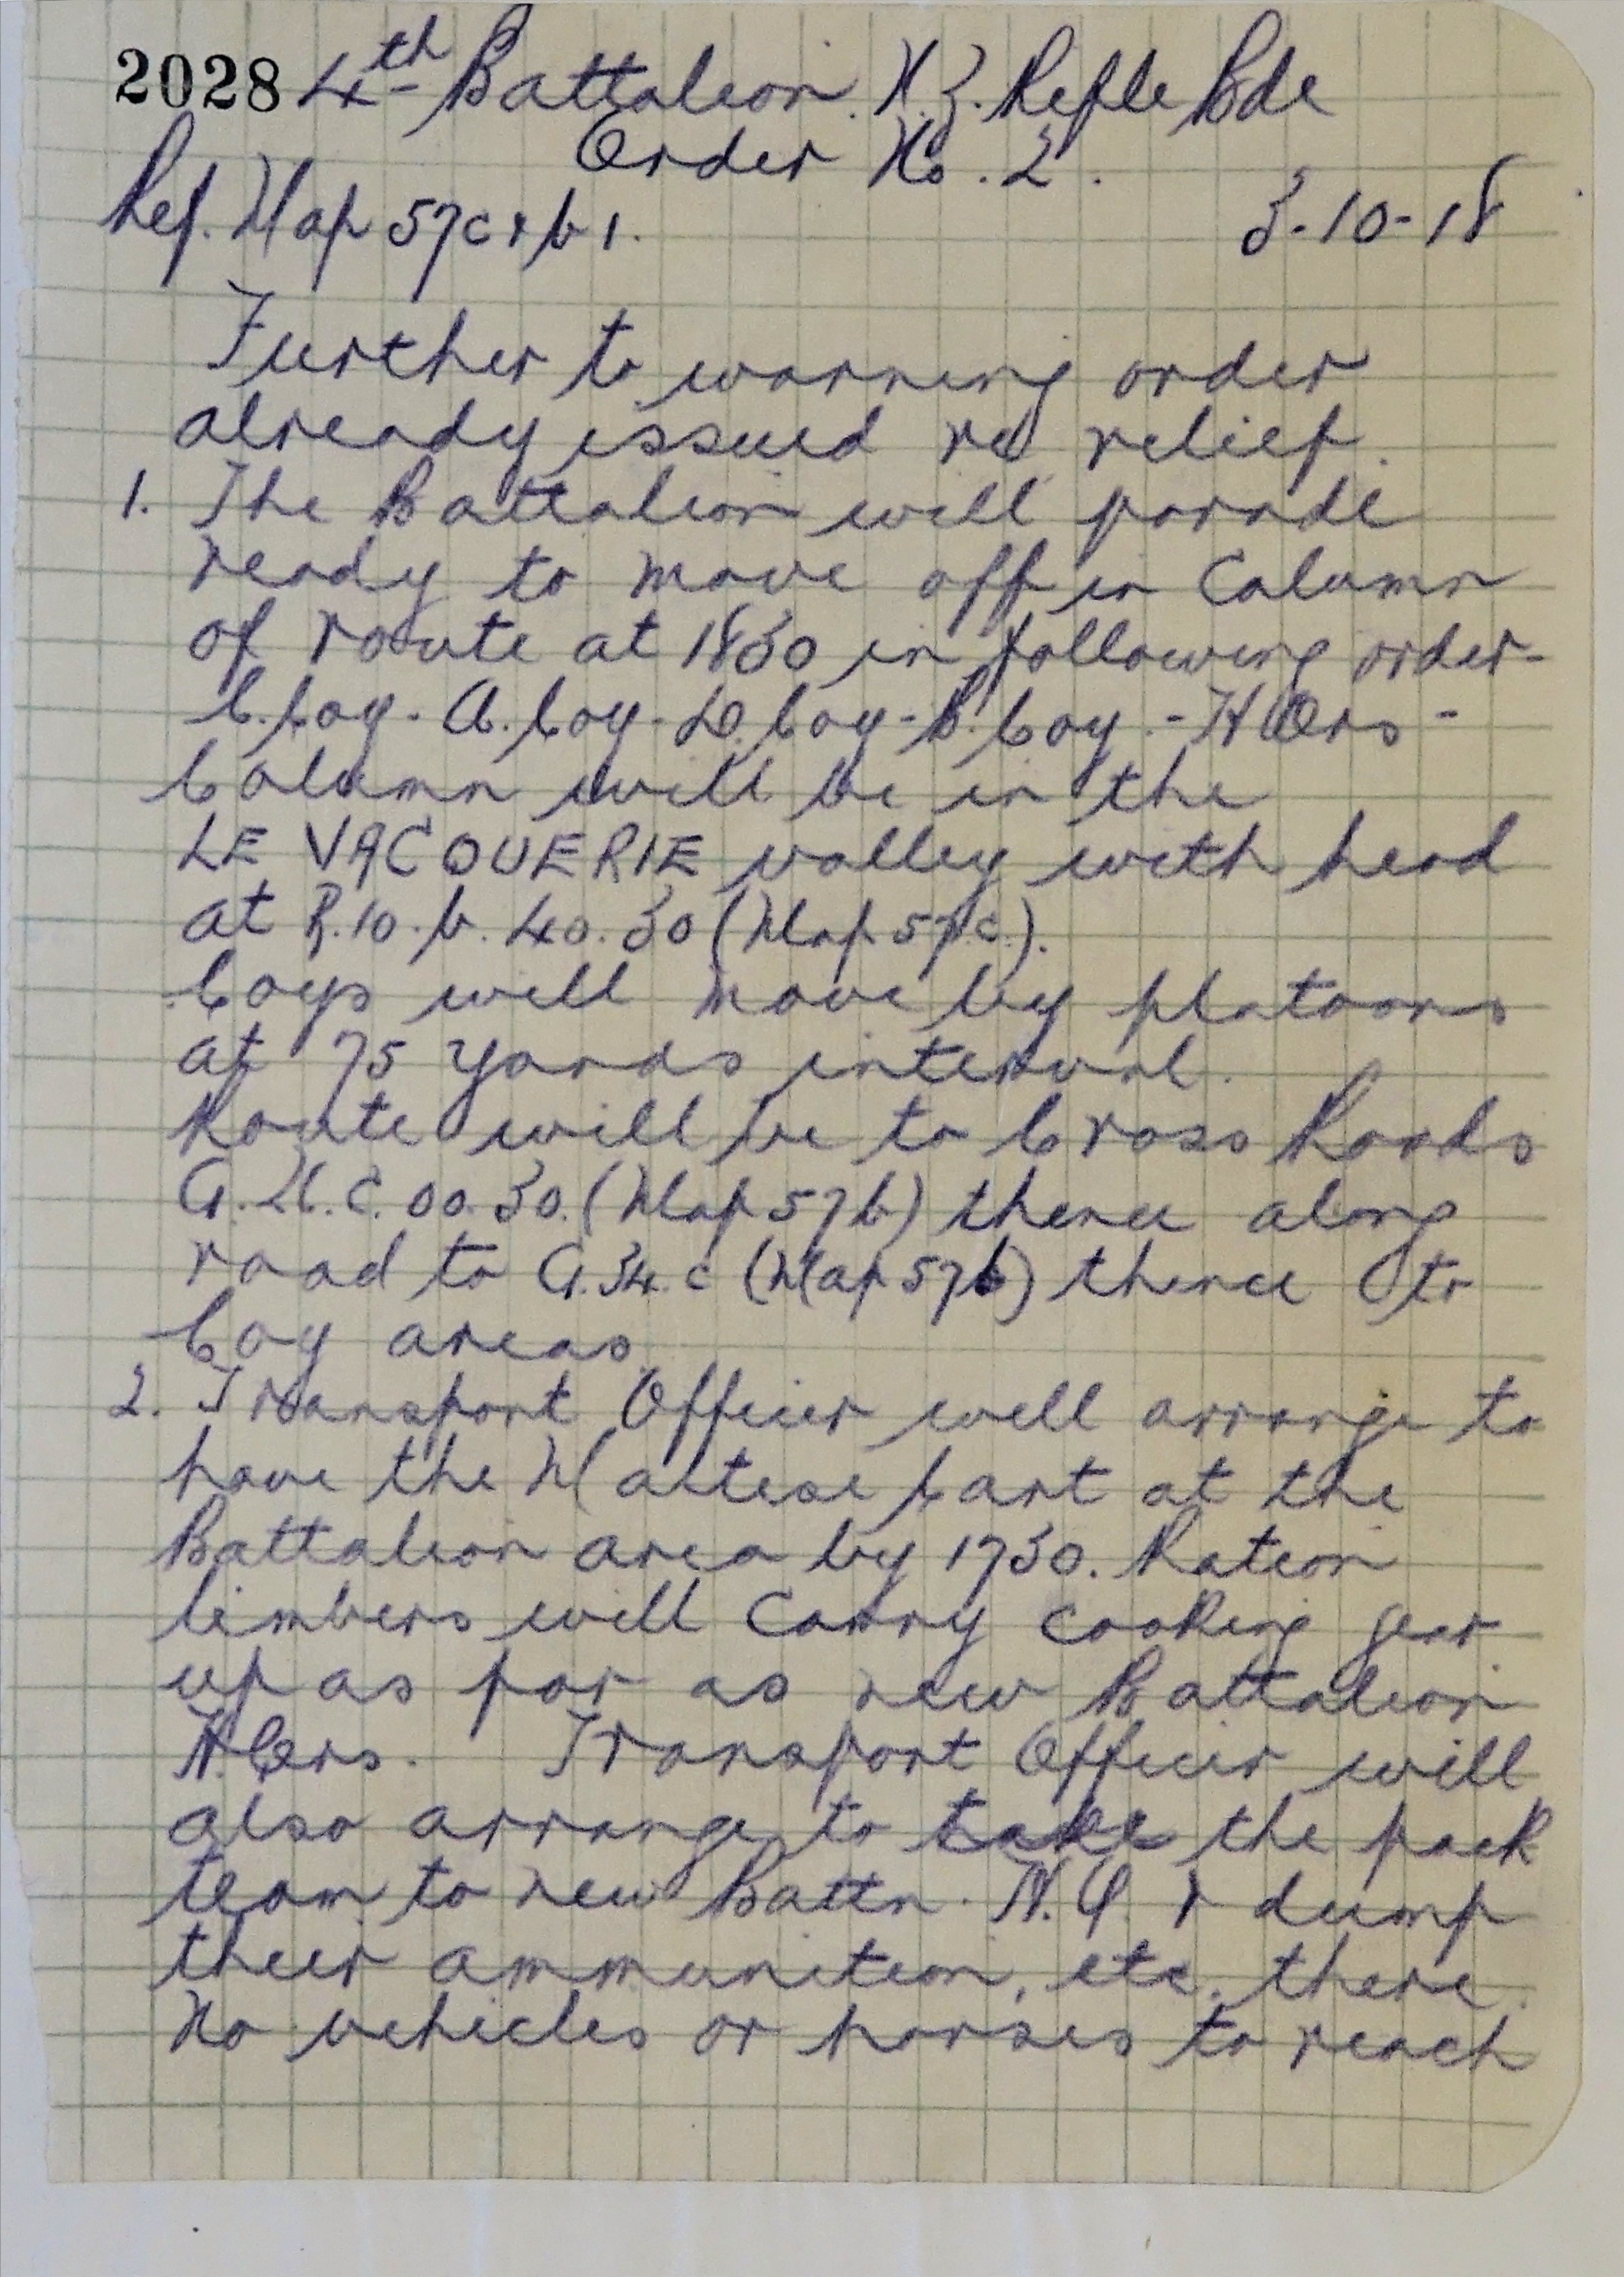 2028 4th Battalion N.Z. Rifle Bde
Order No. 2.
Ref. Map 57c & b 1. 3-10-18
Further to warning order
already issued re relief.
1. The Battalion will parade
ready to move off in Column
of route at 1830 in following order-
C. Coy - A. Coy - D. Coy - B. Coy - HQrs -
Column will be in the
LE VACQUERIE valley with head
at R.10.b.40.30 (Map 57c.).
Coys will move by platoons
at 75 yards interval.
Route will be to Cross Roads
c.00.30. (Map 57b) thence along
road to G.34.c (Map 57b) thence to
Coy areas.
2. Transport Officer will arrange to
have the Maltese Cart at the
Battalion area by 1730. Ration
limbers will carry cooking gear
up as far as new Battalion
H.Qrs. Transport Officer will
also arrange to take the pack
team to new Battn. H.Q. & dump
their ammunition, etc. there.
No vehicles or horses to reach